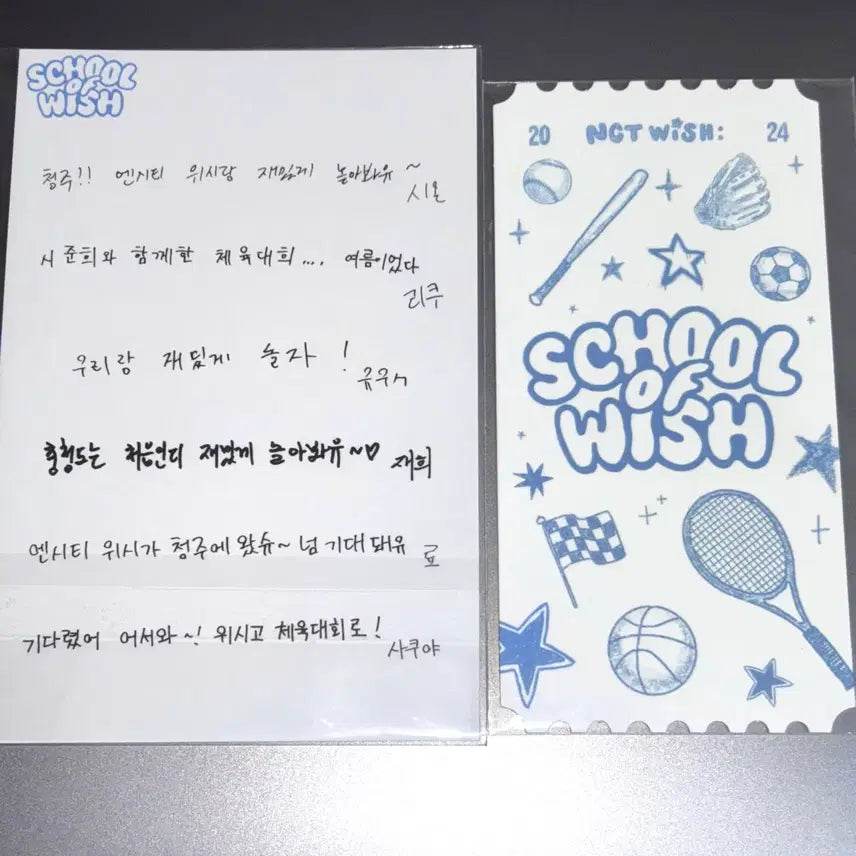 SCHOOL
OF
WISH
청주!! 엔시티 위시랑 재밌게 놀아봐유~
시온
시준희와 함께한 체육대회.... 여름이었다
리쿠
우리랑 재밌게 놀자!
유우시
충청도는 처음인디 재밌게 놀아봐유~♡
재희
엔시티 위시가 청주에 왔슈~ 넘 기대돼유
료
기다렸어 어서와~! 위시고 체육대회로!
사쿠야
20 NCT WISH: 24
SCHOOL
OF
WISH